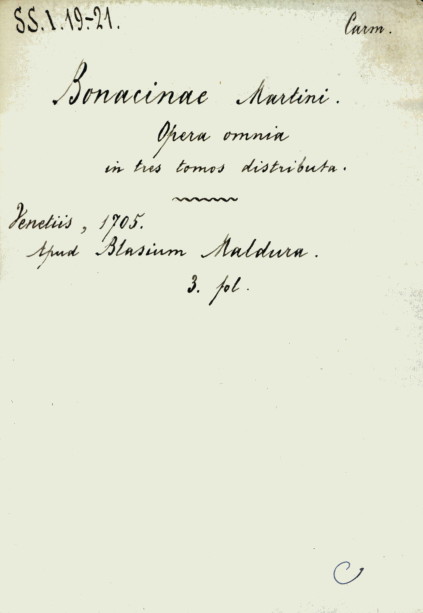 SS. I. 19-21.
Carm.
Bonacinae Martini.
Opera omnia
in tres tomos distributa.
Venetiis, 1705.
Apud Blasium Maldura.
3. fol.